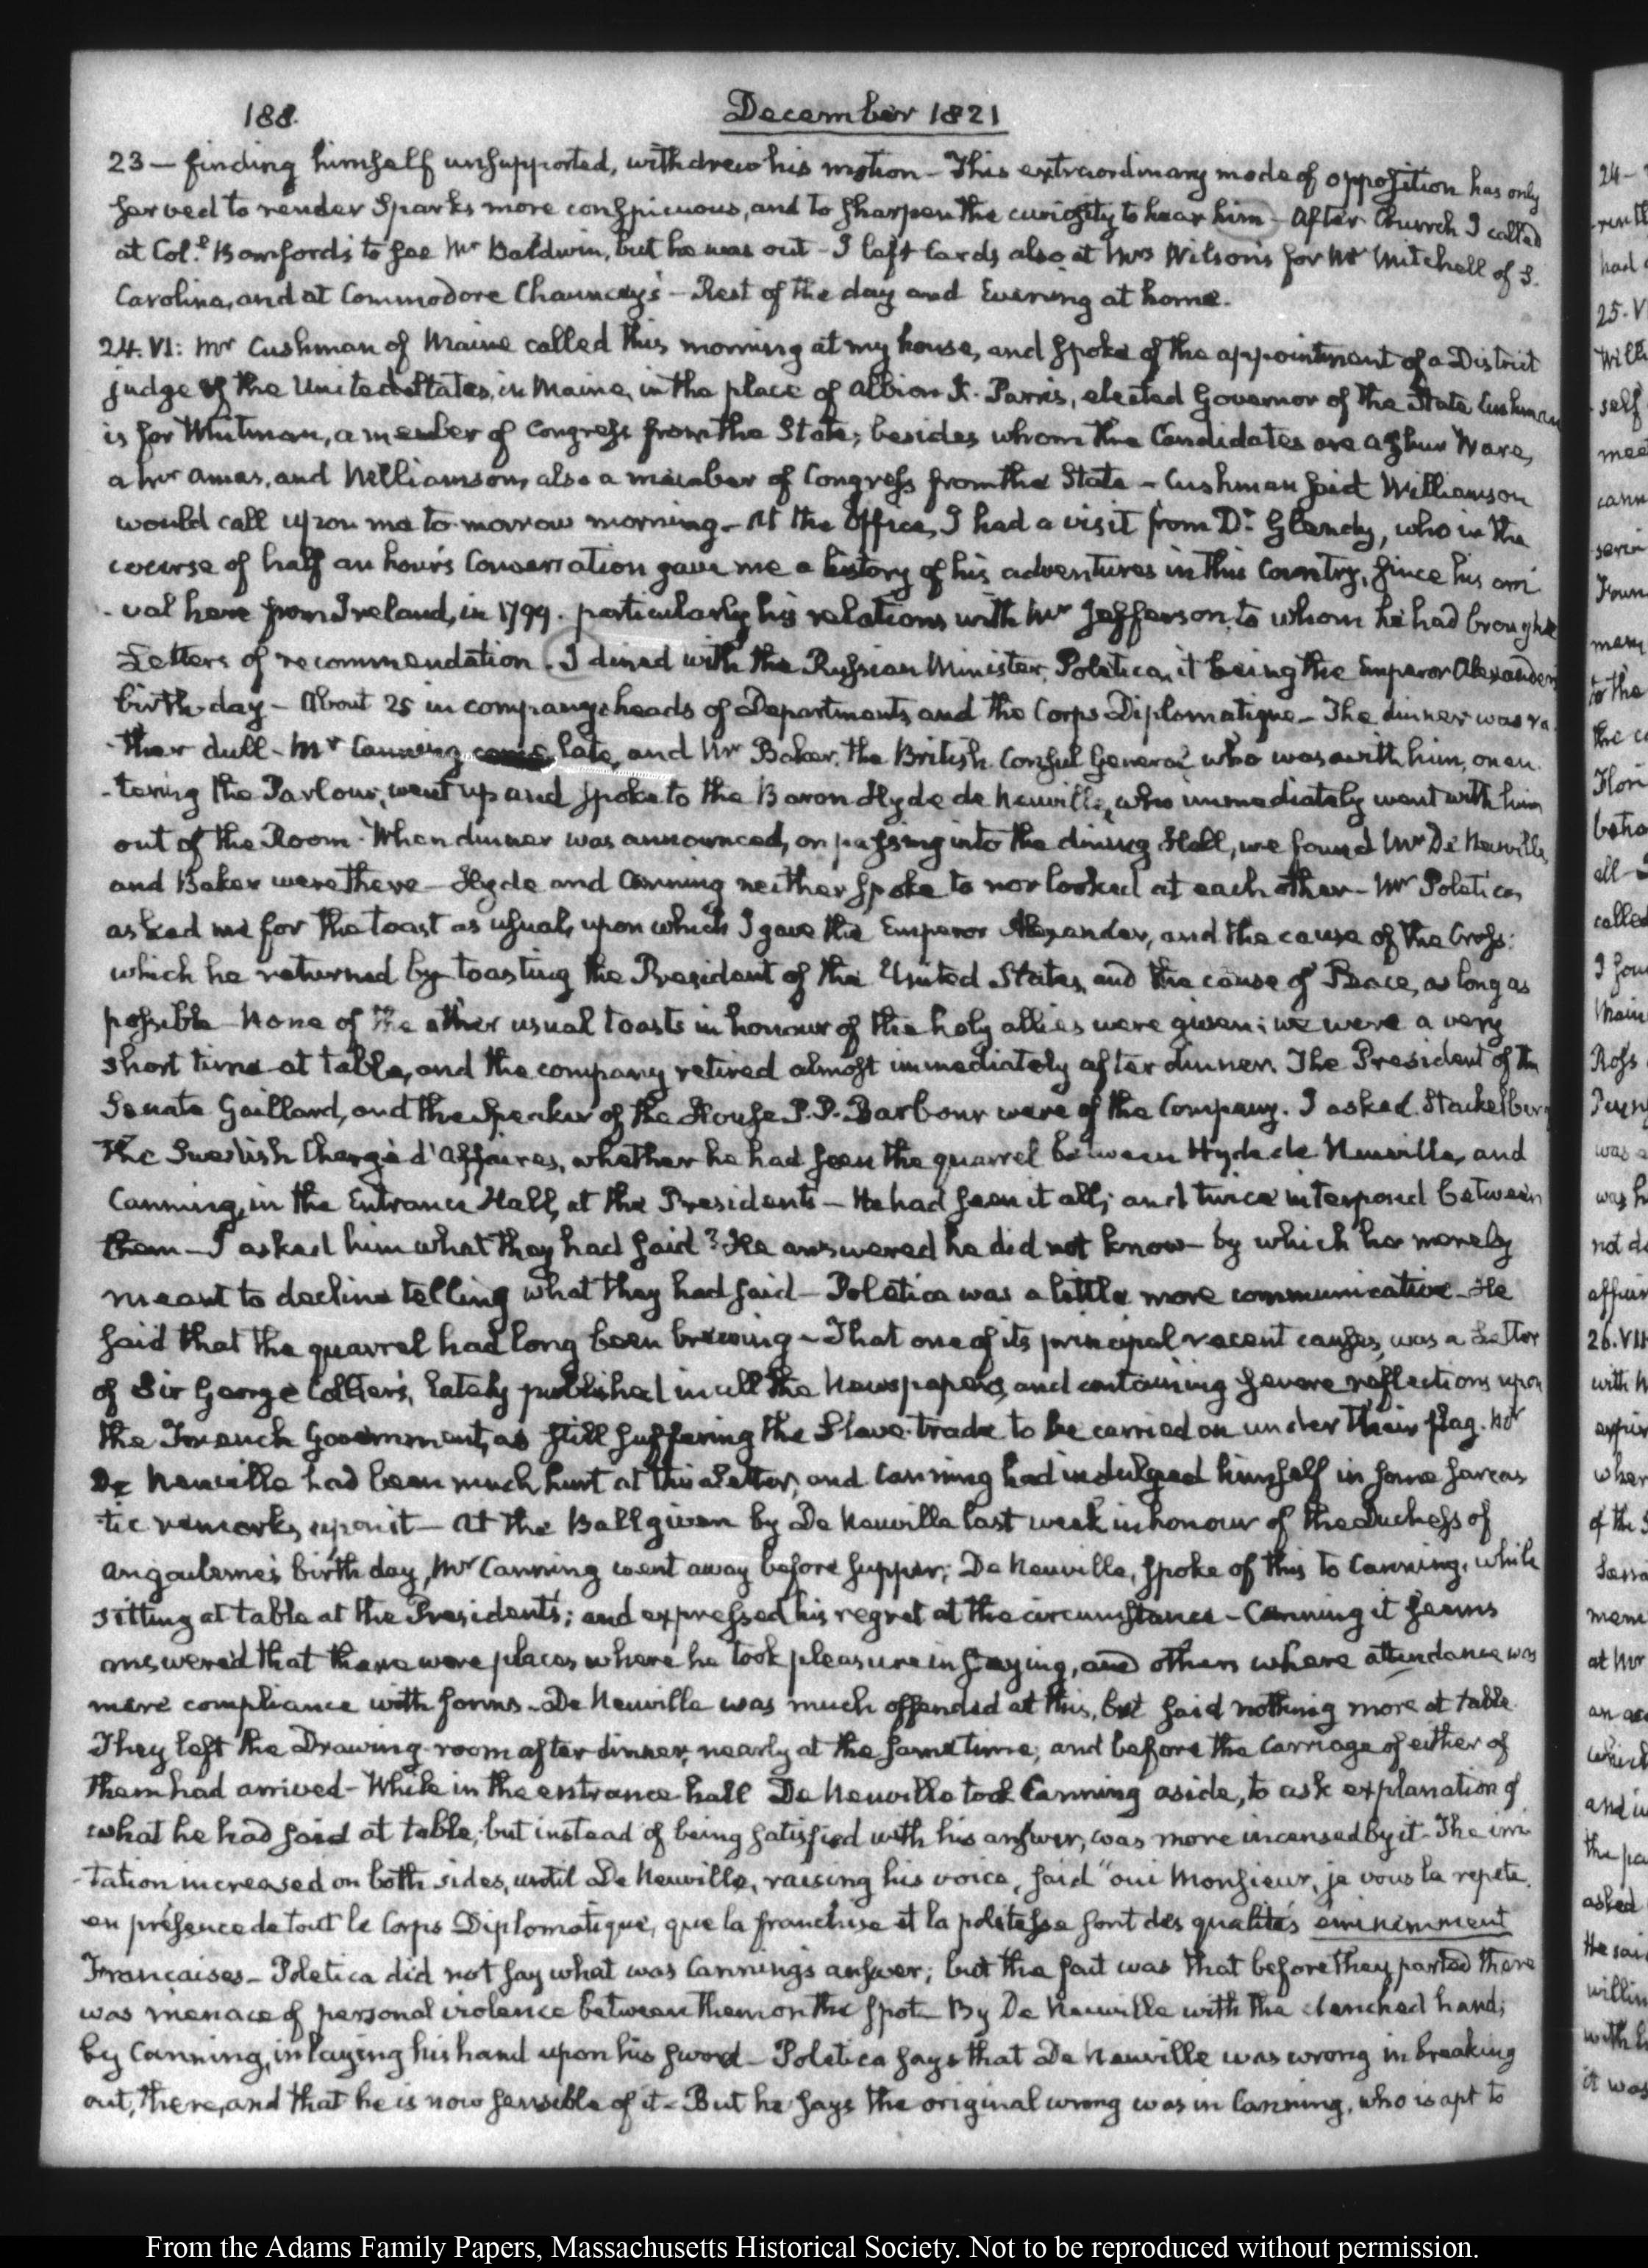 188.
December 1821
23 — finding himself unsupported, withdrew his motion - This extraordinary mode of opposition has only
served to render Sparks more conspicuous, and to sharpen the curiosity to hear him - After Church I called
at Col.l Bomford's to see Mr Baldwin, but he was out - I left Cards also at Mrs Wilson's for Mr Mitchell of S.
Carolina, and at Commodore Chauncey's - Rest of the day and Evening at home.
24. VI: Mr Cushman of Maine called this morning at my house, and spoke of the appointment of a District
judge of the United States, in Maine, in the place of Albion K. Parris, elected Governor of the State Cushman
is for Whitman, a member of Congress from the State; besides whom the Candidates are Ashur Ware,
a Mr Ames, and Williamson, also a member of Congress from the State - Cushman said Williamson
would call upon me to-morrow morning - At the Office, I had a visit from Dr Glendy, who in the
course of half an hour's Conversation gave me a history of his adventures in this Country, since his arri
-val here from Ireland, in 1799. particularly his relations with Mr Jefferson, to whom he had brought
Letters of recommendation. I dined with the Russian Minister, Poletica, it being the Emperor Alexander's
birth-day - About 25 in company: heads of Departments and the Corps Diplomatique - The dinner was ra
-ther dull - Mr Canning came late, and Mr Baker, the British Consul General who was with him, on en
-tering the Parlour, went up and spoke to the Baron Hyde de Neuville, who immediately went with him
out of the Room - When dinner was announced, on passing into the dining Hall, we found Mr De Neuville,
and Baker were there - Hyde and Canning neither spoke to nor looked at each other - Mr Poletica,
asked me for the toast as usual, upon which I gave the Emperor Alexander, and the cause of the Cross:
which he returned by toasting the President of the United States, and the cause of Peace, as long as
possible - None of the other usual toasts in honour of the holy allies were given; we were a very
short time at table, and the company retired almost immediately after dinner. The President of the
Senate Gaillard, and the Speaker of the House P. P. Barbour were of the Company. I asked Stackelberg
the Swedish Chargé d'Affaires, whether he had seen the quarrel between Hyde de Neuville, and
Canning, in the Entrance Hall, at the President's - He had seen it all; and twice interposed between
them - I asked him what they had said? He answered he did not know - by which he merely
meant to decline telling what they had said - Poletica was a little more communicative - He
said that the quarrel had long been brewing - That one of its principal recent causes, was a Letter
of Sir George Collier's, lately published in all the Newspapers, and containing severe reflections upon
the French Government, as still suffering the Slave-trade to be carried on under their flag. Mr
De Neuville had been much hurt at this Letter; and Canning had indulged himself in some sarcas
tic remarks, upon it - At the Ball given by De Neuville last week in honour of the Duchess of
Angouleme's birth day, Mr Canning went away before supper; De Neuville, spoke of this to Canning, while
sitting at table at the President's; and expressed his regret at the circumstance - Canning it seems
answered that there were places where he took pleasure in staying, and others where attendance was
mere compliance with forms - De Neuville was much offended at this, but said nothing more at table.
They left the Drawing-room after dinner, nearly at the same time; and before the Carriage of either of
them had arrived - While in the entrance hall De Neuville took Canning aside, to ask explanation of
what he had said at table; but instead of being satisfied with his answer, was more incensed by it - The irri
-tation increased on both sides, until De Neuville, raising his voice, said "oui Monsieur, je vous la repete,
en présence de tout le Corps Diplomatique, que la franchise et la politesse sont des qualités eminemment
Francaises - Poletica did not say what was Canning's answer; but the fact was that before they parted there
was menace of personal violence between them on the spot - By De Neuville with the clenched hand;
by Canning, in laying his hand upon his sword - Poletica says that De Neuville was wrong in breaking
out, there, and that he is now sensible of it - But he says the original wrong was in Canning, who is apt to
From the Adams Family Papers, Massachusetts Historical Society. Not to be reproduced without permission.